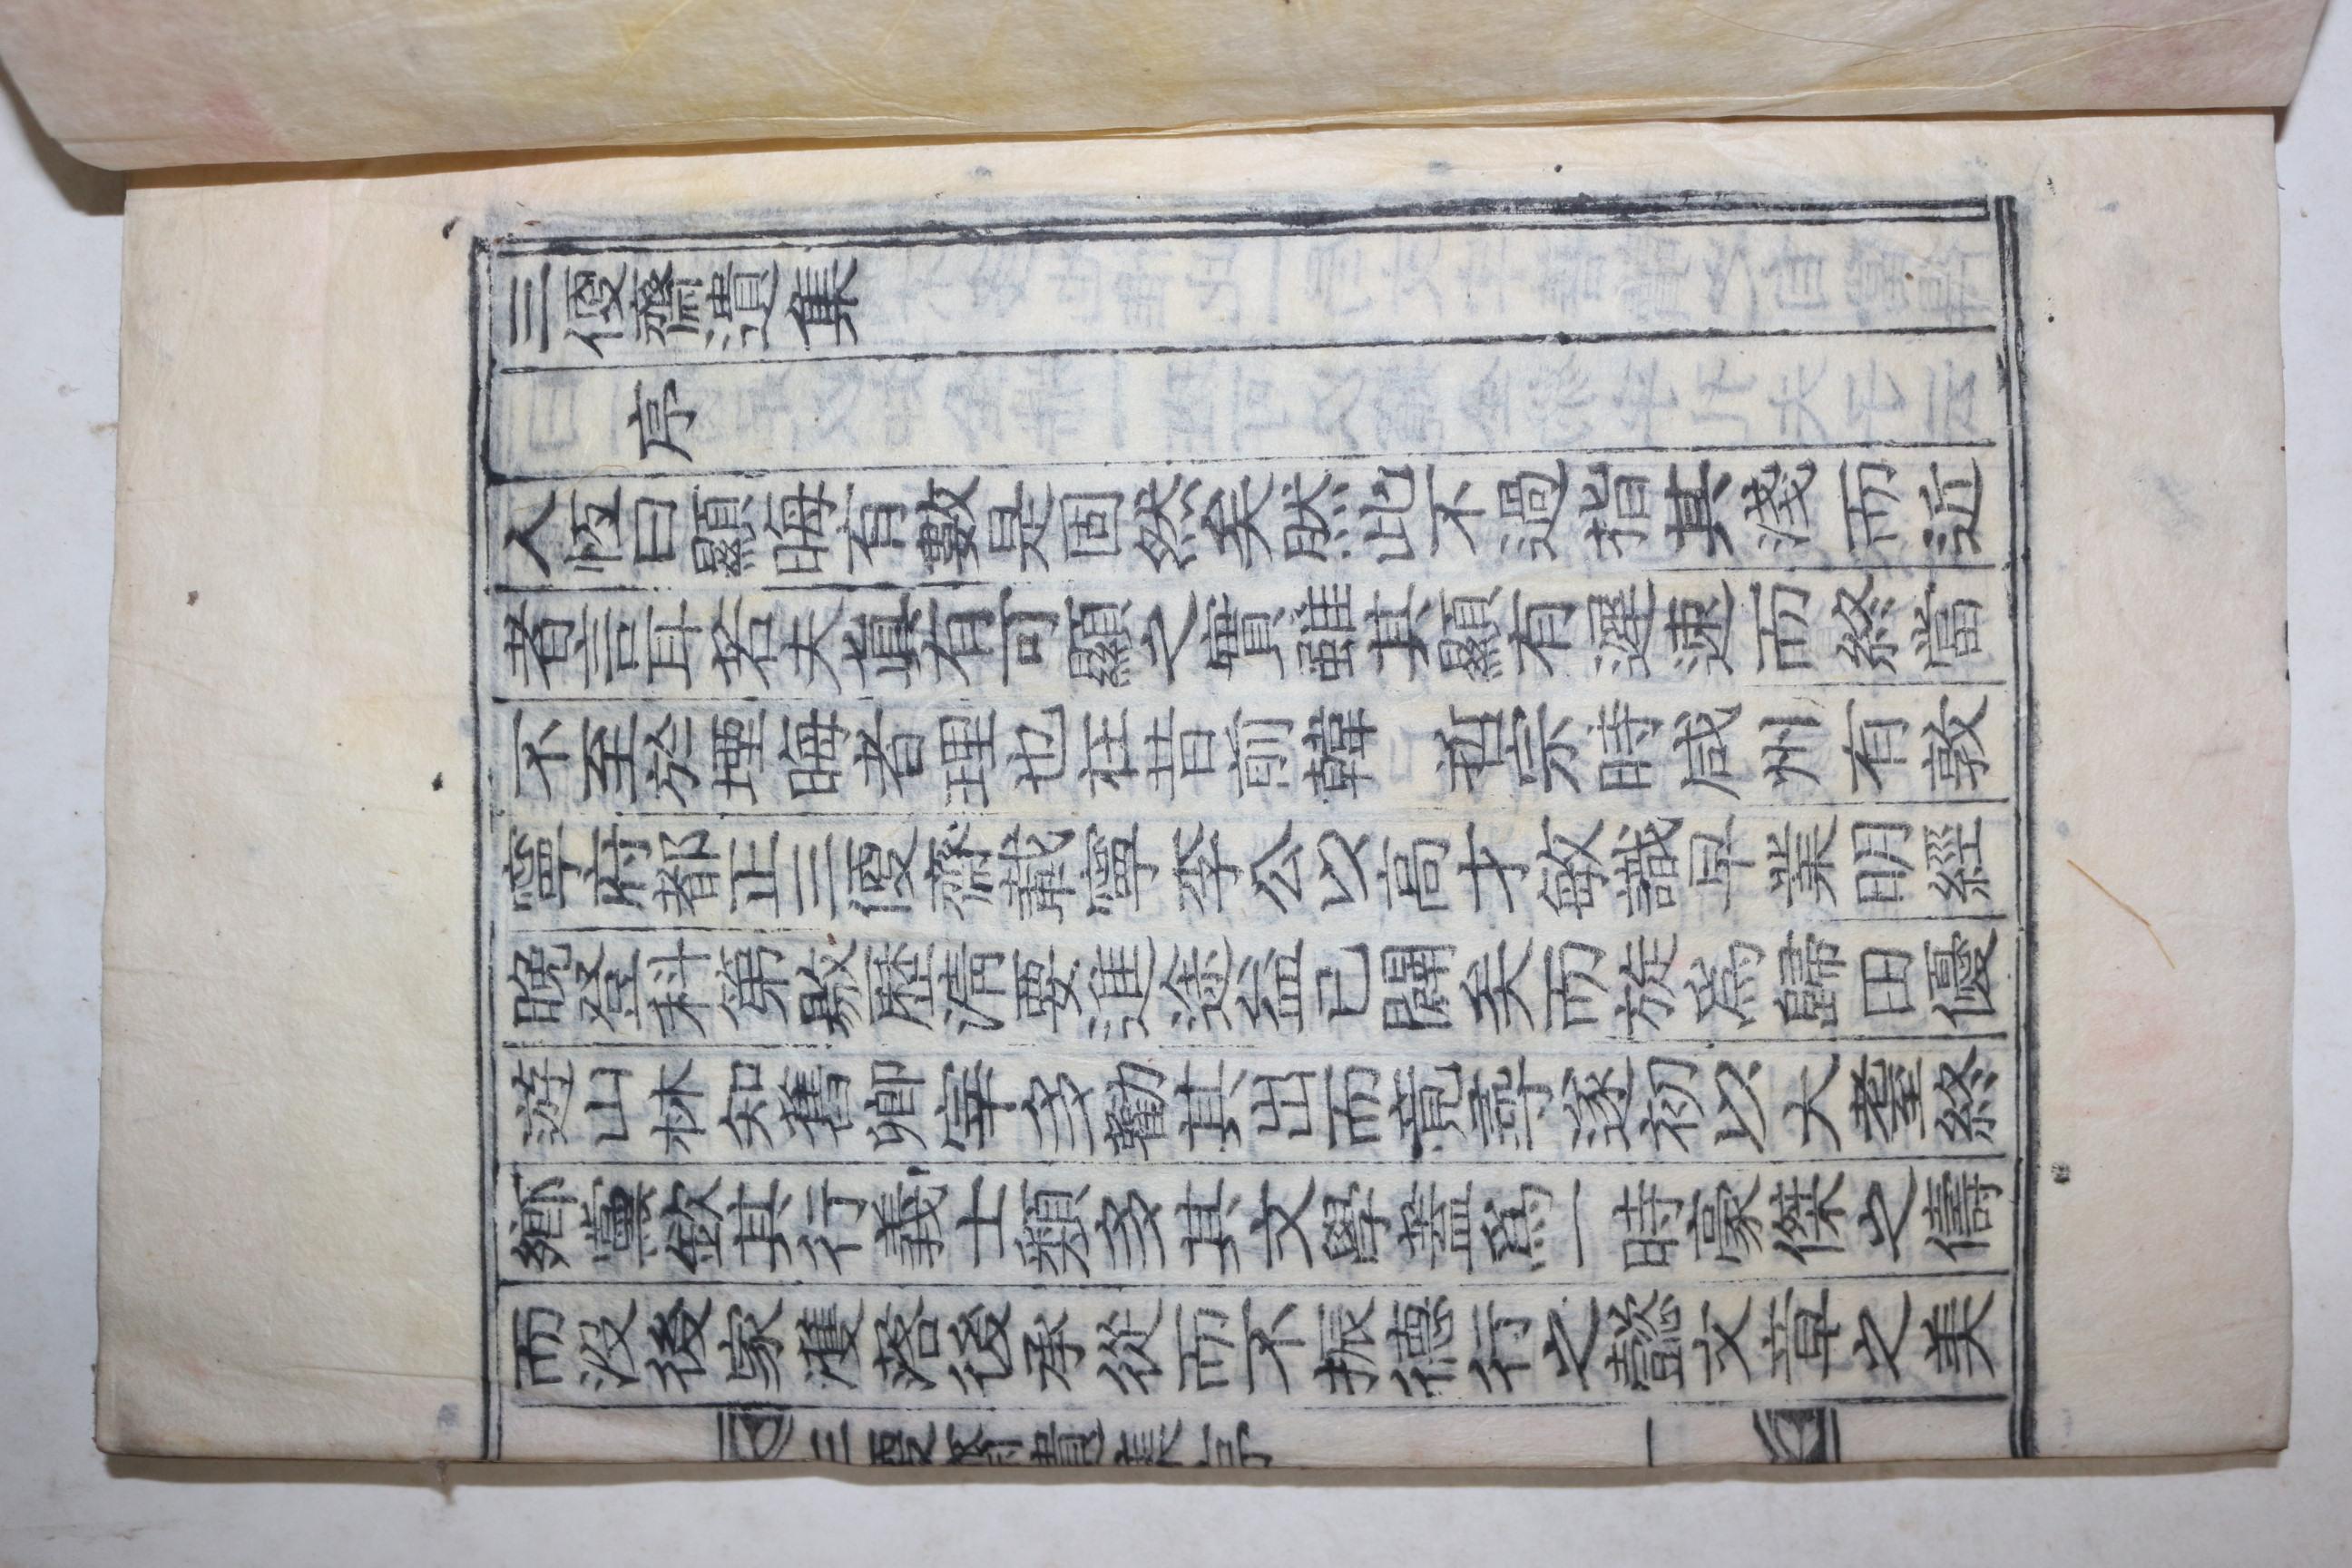 三優齋遺集
序
人恆曰顯晦有數是固然矣然此不過指其淺而近
者言耳若夫眞有可顯之實雖其顯有遲速而終當
不至於堙晦者理也在昔前韓哲宗時咸州有敦
寧府都正三優齋載寧李公以高才敏識早業明經
晩登科第敭歷淸要進途益已闢矣而旋爲歸田優
遊山林知舊卿宰多勸其出而竟尋遂初以大耋終
鄕黨欽其行義士類多其文學盖爲一時豪傑之儔
而沒後家濩落後承從而不振德行之懿文章之美
三優齋遺集序 一